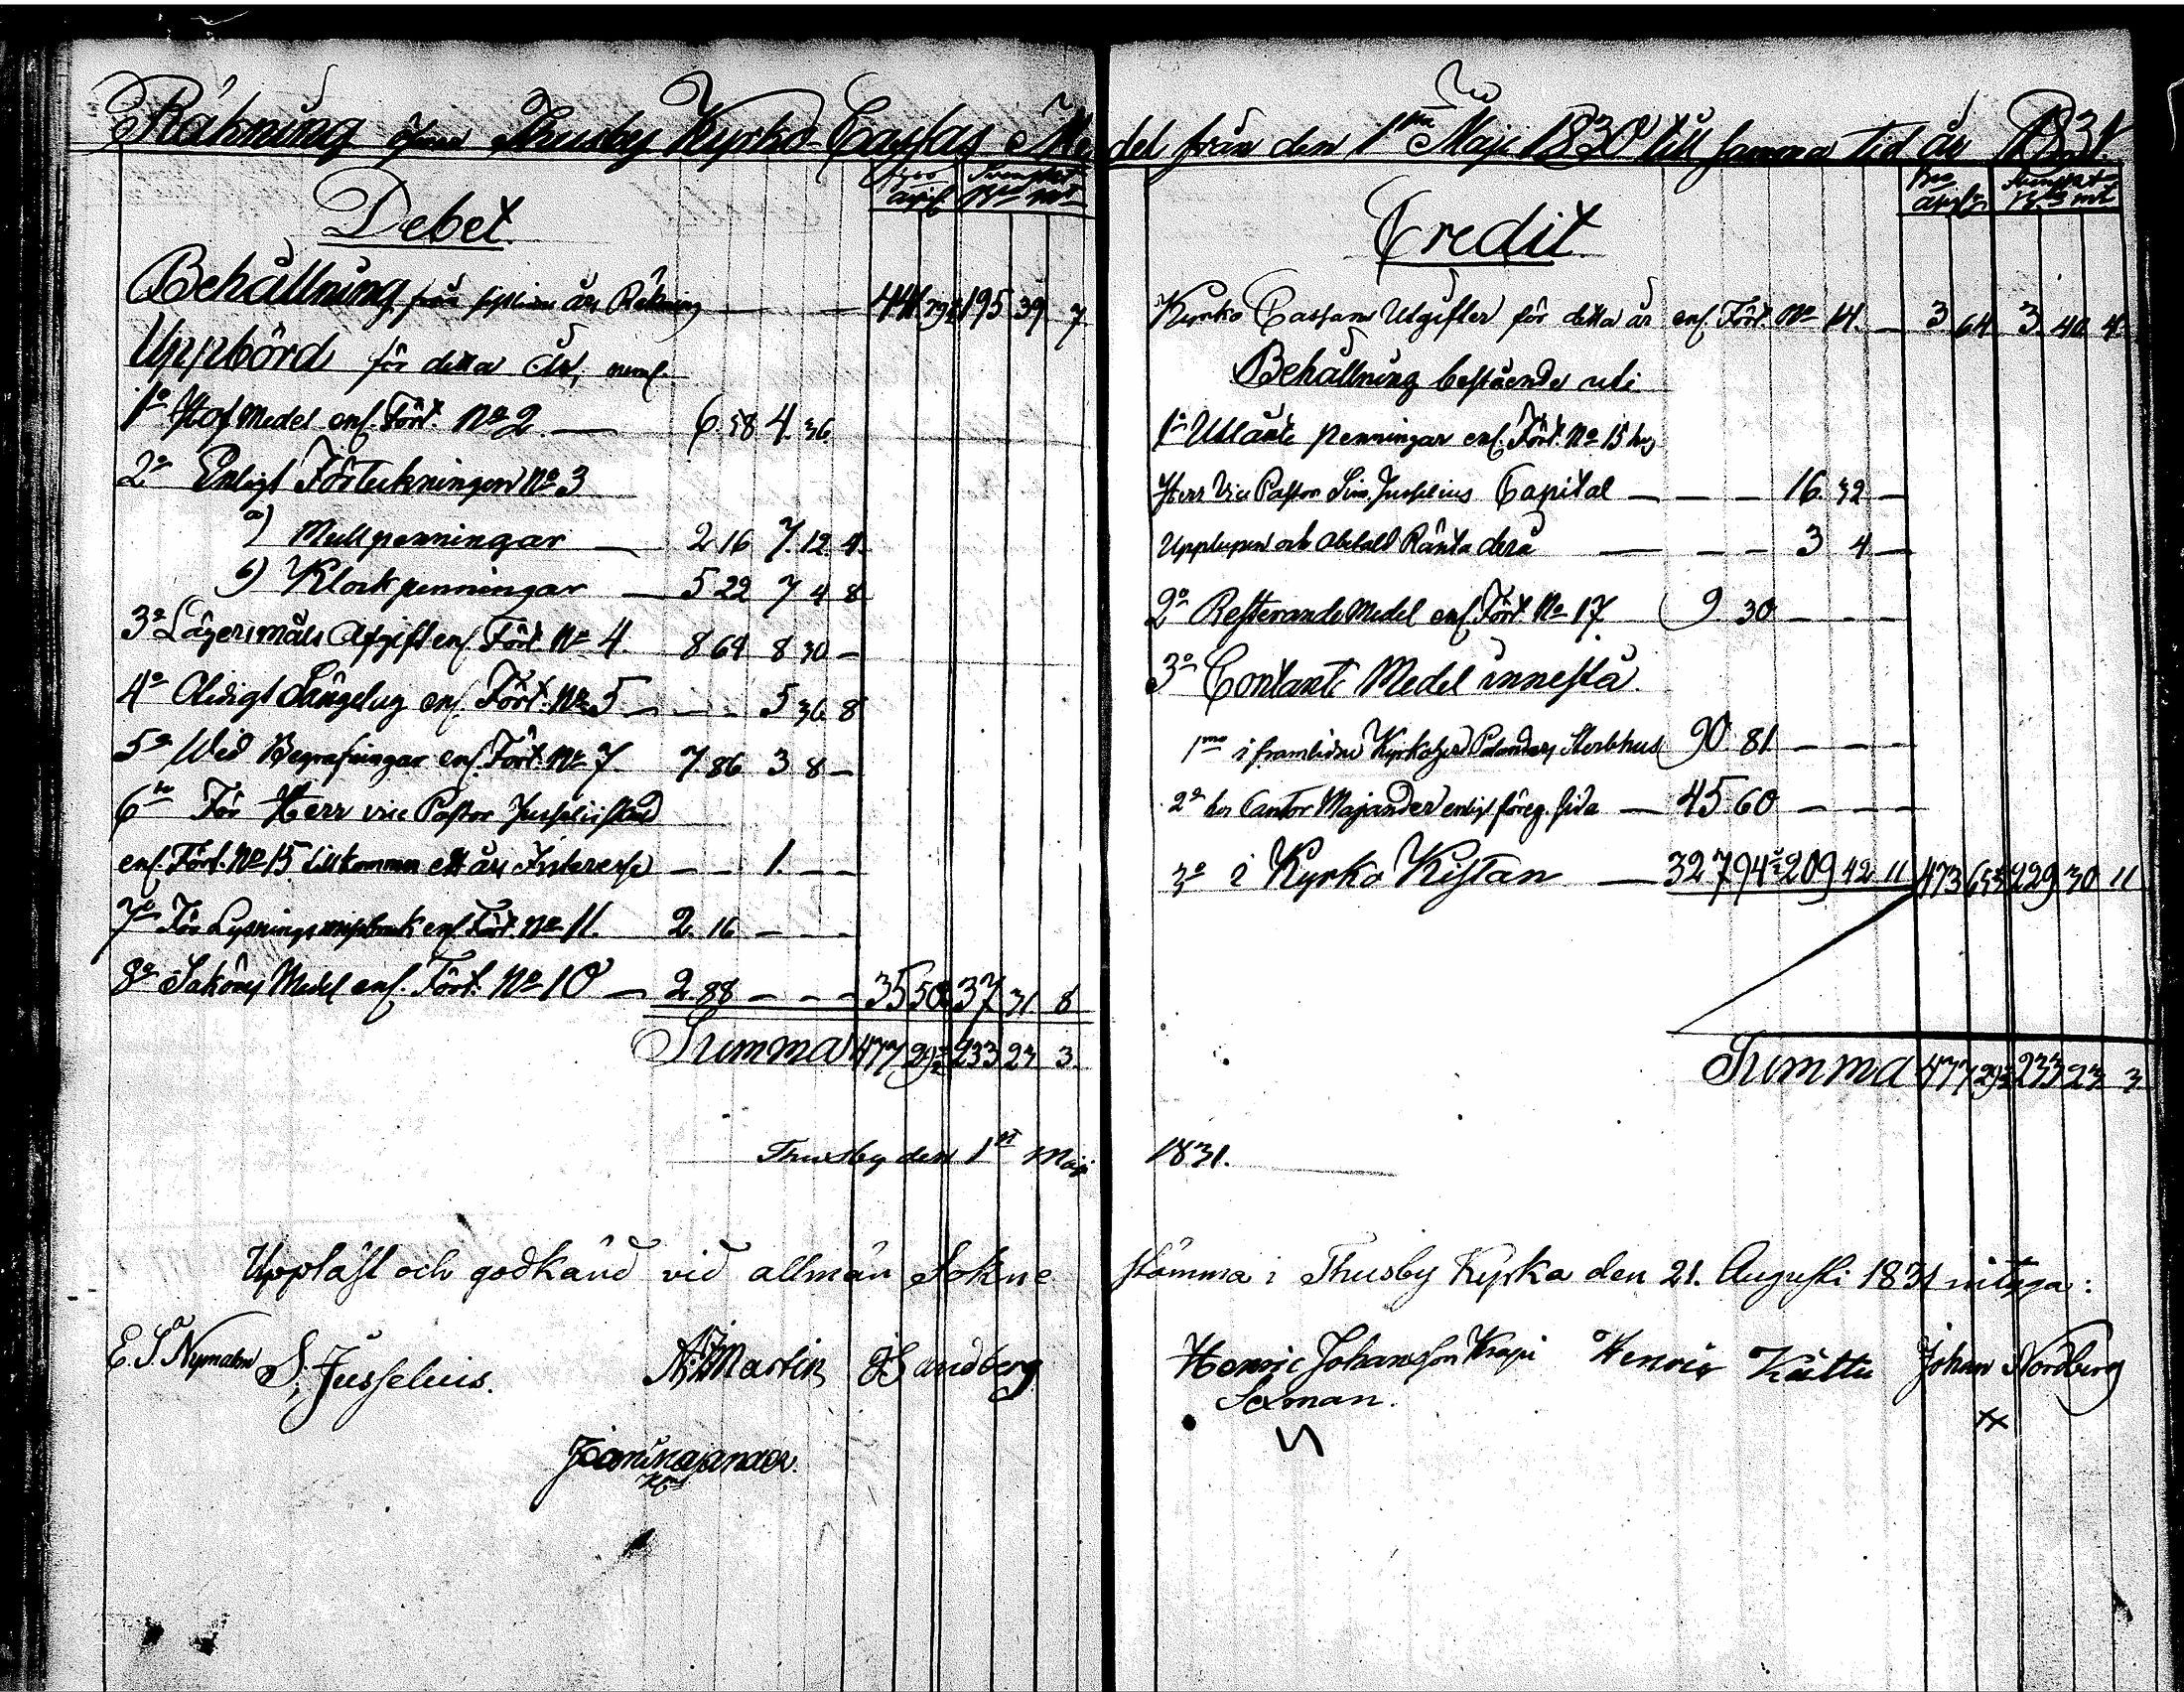 Räkning öfver Thusby Kyrko-Cassas Me
Debet.
Behållning från sistledne års Räkning — — 441 79½ 195 39 7
Uppbörd för detta År, neml.
1o Håf Medel enl. Fört. No 2. — 6. 58. 4. 36
2o Enligt Förteckningen No 3
a) Mullpenningar — 2 16 7. 12. 4.
b) Klockpenningar — 5 22 7 4 8
3o Lägersmåls Afgift enl. Fört. No 4. 8 64 8 30 —
4o Oledigt Sängelag enl. Fört. No 5 — — — 5 36. 8
5o Wid Begrafningar enl. Fört. No 7 7. 86 3 8 —
6to För Herr vice Pastor Jusselii
enl. Fört. No 15 tillkommer ett års Interesse — — 1. — —
7o För Lysnings enl. Fört. No 11. 2. 16 — — —
8o Saköres Medel enl. Fört. No 10 — 2. 88 — — — 35 50 37 31 8
Summa 477 29½ 233 23 3.
Thusby den 1st Maji
Uppläst och godkänd vid allmän Sokne
E. S. Nyman S. Jusselius. Martin Sandberg
del från den 1ma Maji 1830 till samma tid år 1831.
Credit
Kyrko Cassans Utgifter för detta år enl. Fört. No 14. — 3 64 3. 40. 4.
Behållning bestående uti
1o Utlånte penningar enl. Fört. No 15 hos
Herr Vice Pastor Sim. Jusselius Capital — — — 16. 32 —
Upplupen och obetald Ränta derå — — — 3 4 —
2o Resterande Medel enl. Fört. No 17 9. 30 — — —
3o Contante Medel innestå.
1mo i framlidne Kyrkoherd Polanders Sterbhus 90. 81. — — —
2o hos Cantor Majander enligt föreg. sida — 45. 60 — — —
3o i Kyrko Kistan — 327 94½ 209 42 11 473 65½ 229 30 11
Summa 477 29½ 233 23. 3
1831.
stämma i Thusby Kyrka den 21. Augusti 1831 intyga:
Henric Johansson Henric Johan Nordberg
Sexman.